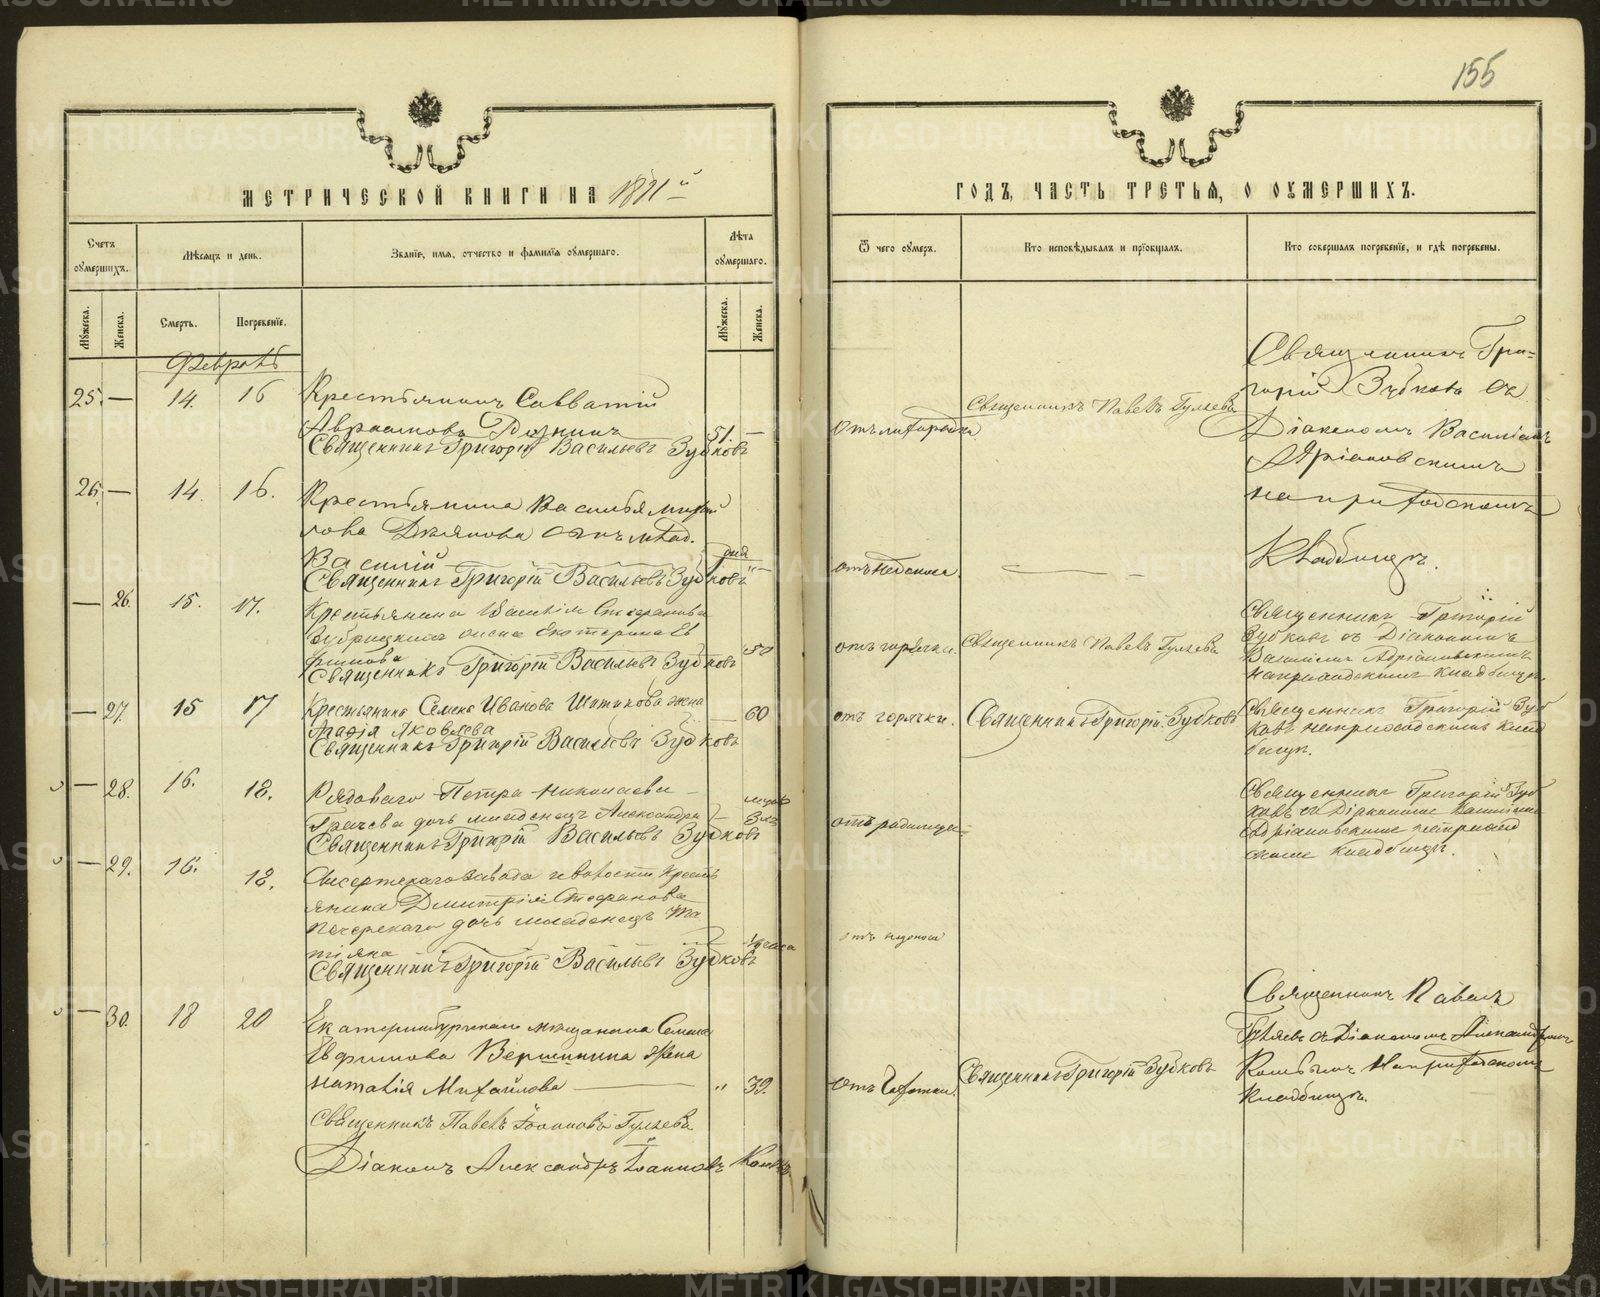 155
МЕТРИЧЕСКОЙ КНИГИ НА 1871й
ГОДЪ, ЧАСТЬ ТРЕТЬЯ, О ОУМЕРШИХЪ.
Счетъ оумершихъ.
Мѣсяцъ и день.
Званіе, имя, отчество и фамилія оумершаго.
Лѣта оумершаго.
Ѿ чего оумеръ.
Кто исповѣдывалъ и пріобщалъ.
Кто совершалъ погребеніе, и гдѣ погребены.
Мужеска.
Женска.
Смерть.
Погребеніе.
Мужеска.
Женска.
Февраль
25. — 14. 16 Крестьянинъ Савватій
Авраамовъ 51. —
Священникъ Григорій Васильевъ Зубковъ
Священникъ Павелъ Гуляевъ
Священникъ Гри-
горій Зубковъ съ
Діакономъ Василіемъ
Адріановскимъ
на приходскомъ
кладбищѣ.
26. — 14. 16. Крестьянина Василья
сынъ млад.
Василій дня
Священникъ Григорій Васильевъ Зубковъ
— 26. 15. 17. Крестьянина
жена Екатерина Ев
фимова 50
Священникъ Григорій Васильевъ Зубковъ
отъ горячки. Священникъ Павелъ Гуляевъ
Священникъ Григорій
Зубковъ съ Діакономъ
Василіемъ Адріановскимъ
на приходскомъ кладбищѣ.
— 27. 15 17 Крестьянина Семена Иванова Шипикова жена
Агафія Яковлева — 60
Священникъ Григорій Васильевъ Зубковъ
отъ горячки. Священникъ Григорій Зубковъ
Священникъ Григорій Зуб
ковъ на приходскомъ клад
бищѣ.
— 28. 16. 18. Рядоваго Петра Николаева
Грачева дочь младенецъ Александра
Священникъ Григорій Васильевъ Зубковъ
отъ родимца
Священникъ Григорій Зуб
ковъ съ Діакономъ Василіемъ
Адріановскимъ на приход
скомъ кладбищѣ.
— 29. 16. 18. Сысертскаго завода
янина Димитрія Стефанова
Печерскаго дочь младенецъ Та
тіяна
Священникъ Григорій Васильевъ Зубковъ
— 30. 18 20 Екатеринбургскаго мѣщанина Семена
Евфимова Вершинина жена
Наталія Михайлова — " 39.
Священникъ Павелъ Іоанновъ Гуляевъ
Діаконъ Александръ Іоанновъ
отъ чахотки. Священникъ Григорій Зубковъ
Священникъ Павелъ
Гуляевъ съ Діакономъ Александромъ
на приходскомъ
кладбищѣ.
METRIKI.GASO-URAL.RU